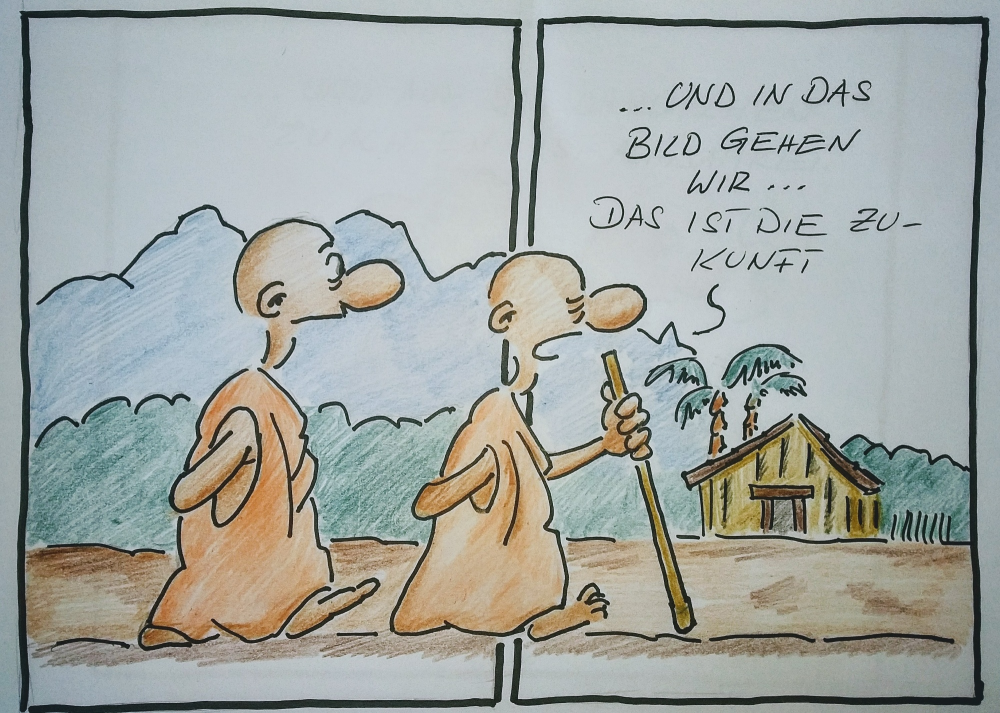 ...UND IN DAS
BILD GEHEN
WIR...
DAS IST DIE ZU-
KUNFT